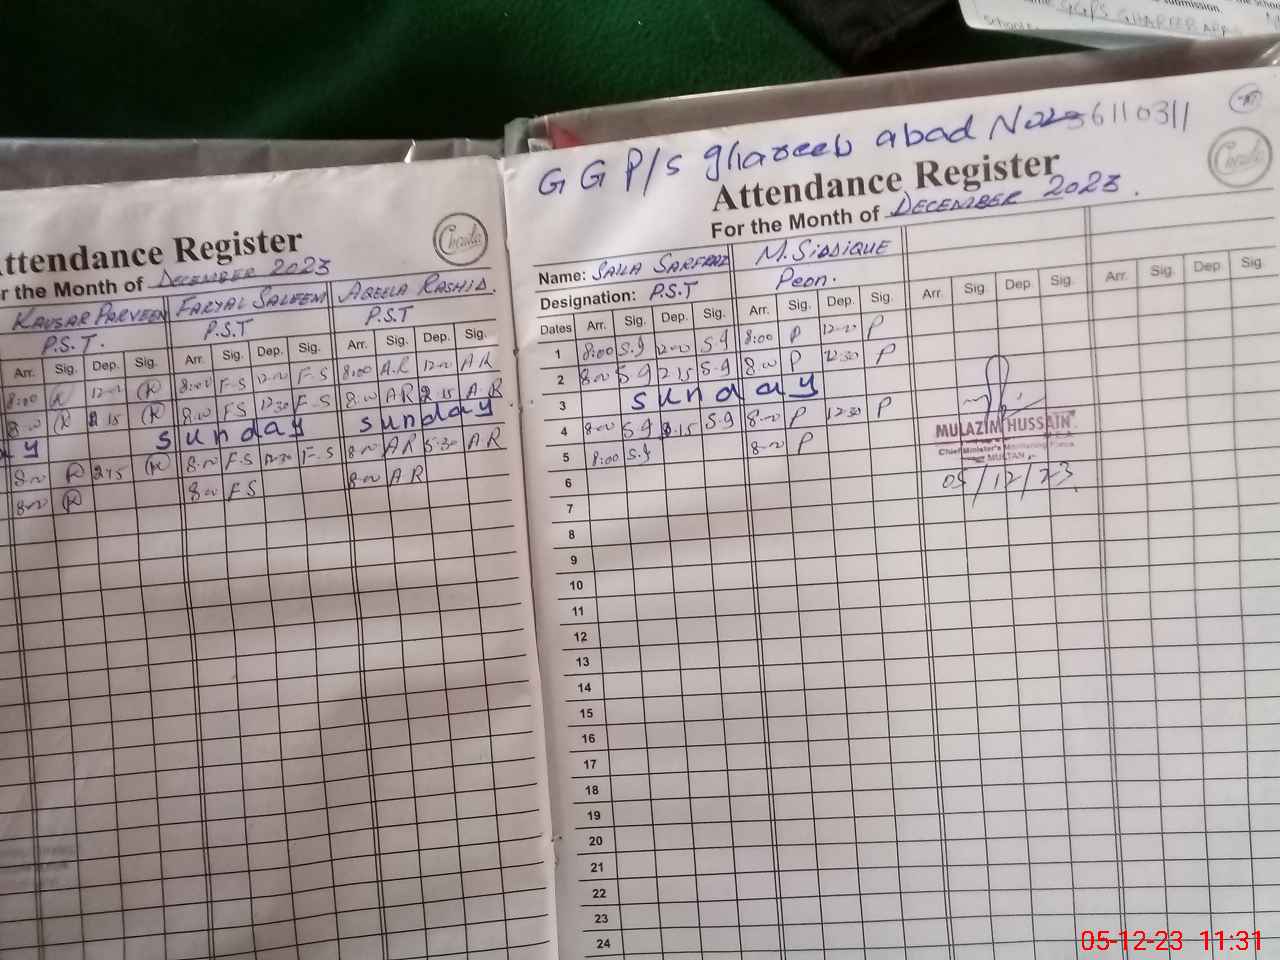 submission.
GGPS GHAREEB
School
G G P/S ghareeb abad No 36110311
Attendance Register
For the Month of DECEMBER 2023.
Name: SAILA SARFRAZ M.SIDDIQUE
Designation: P.S.T Peon.
Dates Arr. Sig. Dep. Sig. Arr. Sig. Dep. Sig. Arr. Sig. Dep. Sig. Arr. Sig. Dep. Sig.
1 8:00 S.g 12:00 S.g 8:00 P 12:00 P
2 8:00 S.g 2:15 S.g 8:00 P 12:30 P
3 sunday
4 8:00 S.g 2:15 S.g 8:00 P 12:30 P
5 8:00 S.g 8:00 P
6
7
8
9
10
11
12
13
14
15
16
17
18
19
20
21
22
23
24
MULAZIM HUSSAIN
Chief Minister's Monitoring Force
MULTAN
05/12/23
Attendance Register
r the Month of DECEMBER 2023
KAUSAR PARVEEN FARYAL SALEEM AQEELA RASHID.
P.S.T. P.S.T P.S.T
Arr. Sig. Dep. Sig. Arr. Sig. Dep. Sig. Arr. Sig. Dep. Sig.
8:00 K 12:00 K 8:00 F-S 12:00 F-S 8:00 A.R 12:00 AR
8:00 K 2:15 K 8:00 FS 12:30 F-S 8:00 AR 2:15 A.R
y sunday sunday
8:00 K 2:15 K 8:00 F-S 12:30 F-S 8:00 AR 5:30 AR
8:00 K 8:00 FS 8:00 AR
05-12-23 11:31